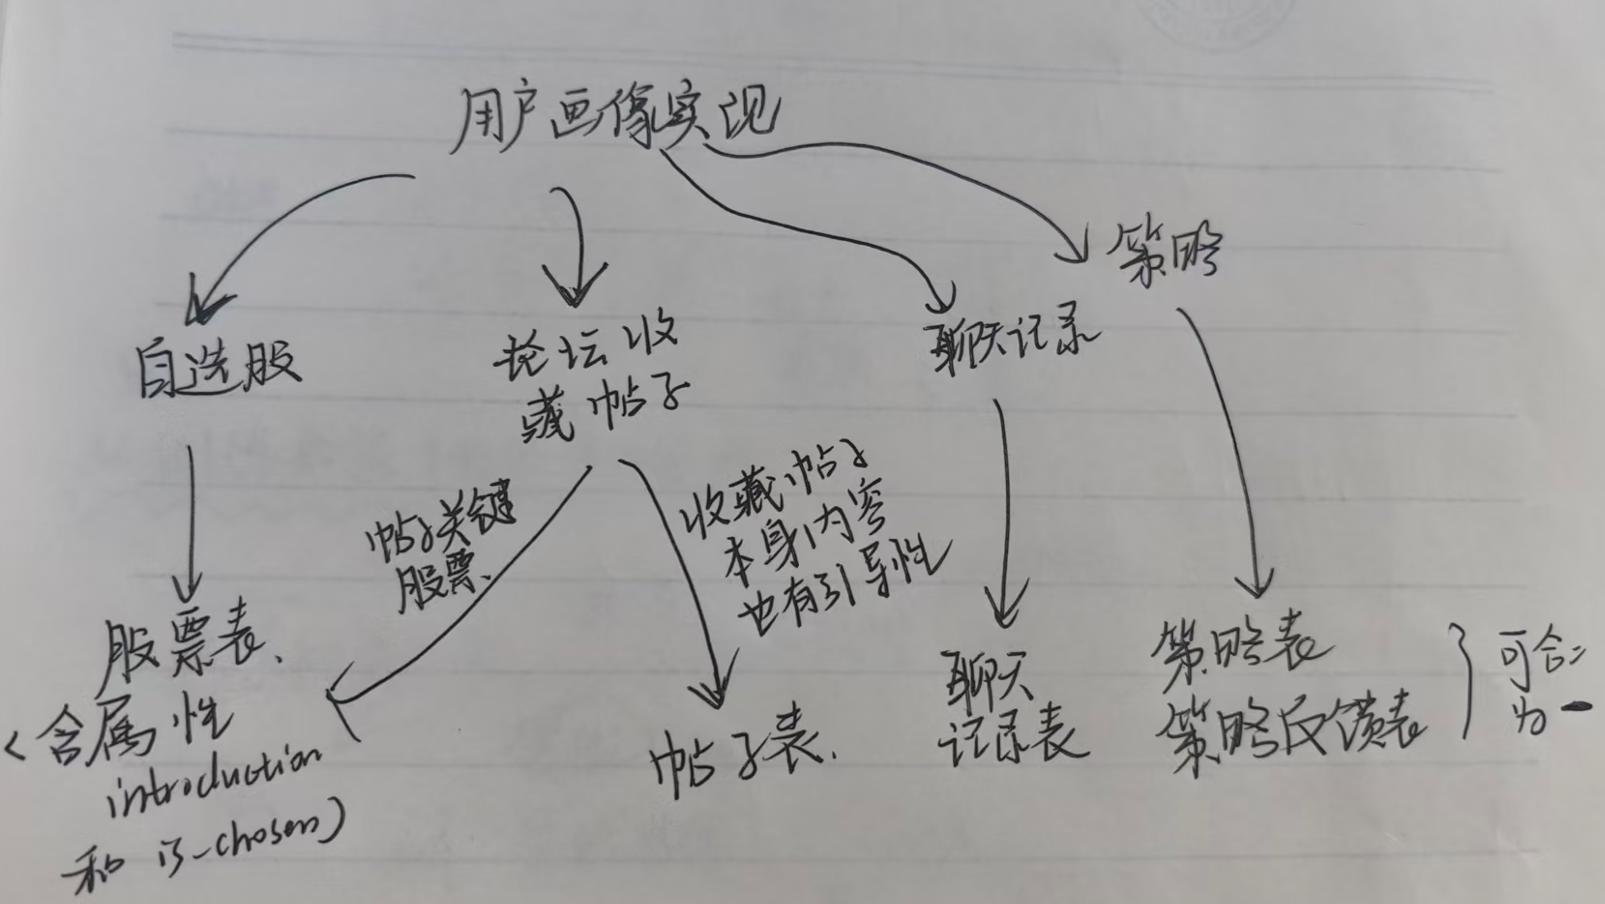 用户画像实现
策略
自选股
论坛收
藏帖子
聊天记录
帖子关键
股票、
收藏帖子
本身内容
也有引导性
股票表、
(含属性
introduction
和 is-chosen)
帖子表.
聊天
记录表
策略表
策略反馈表
可合二
为一